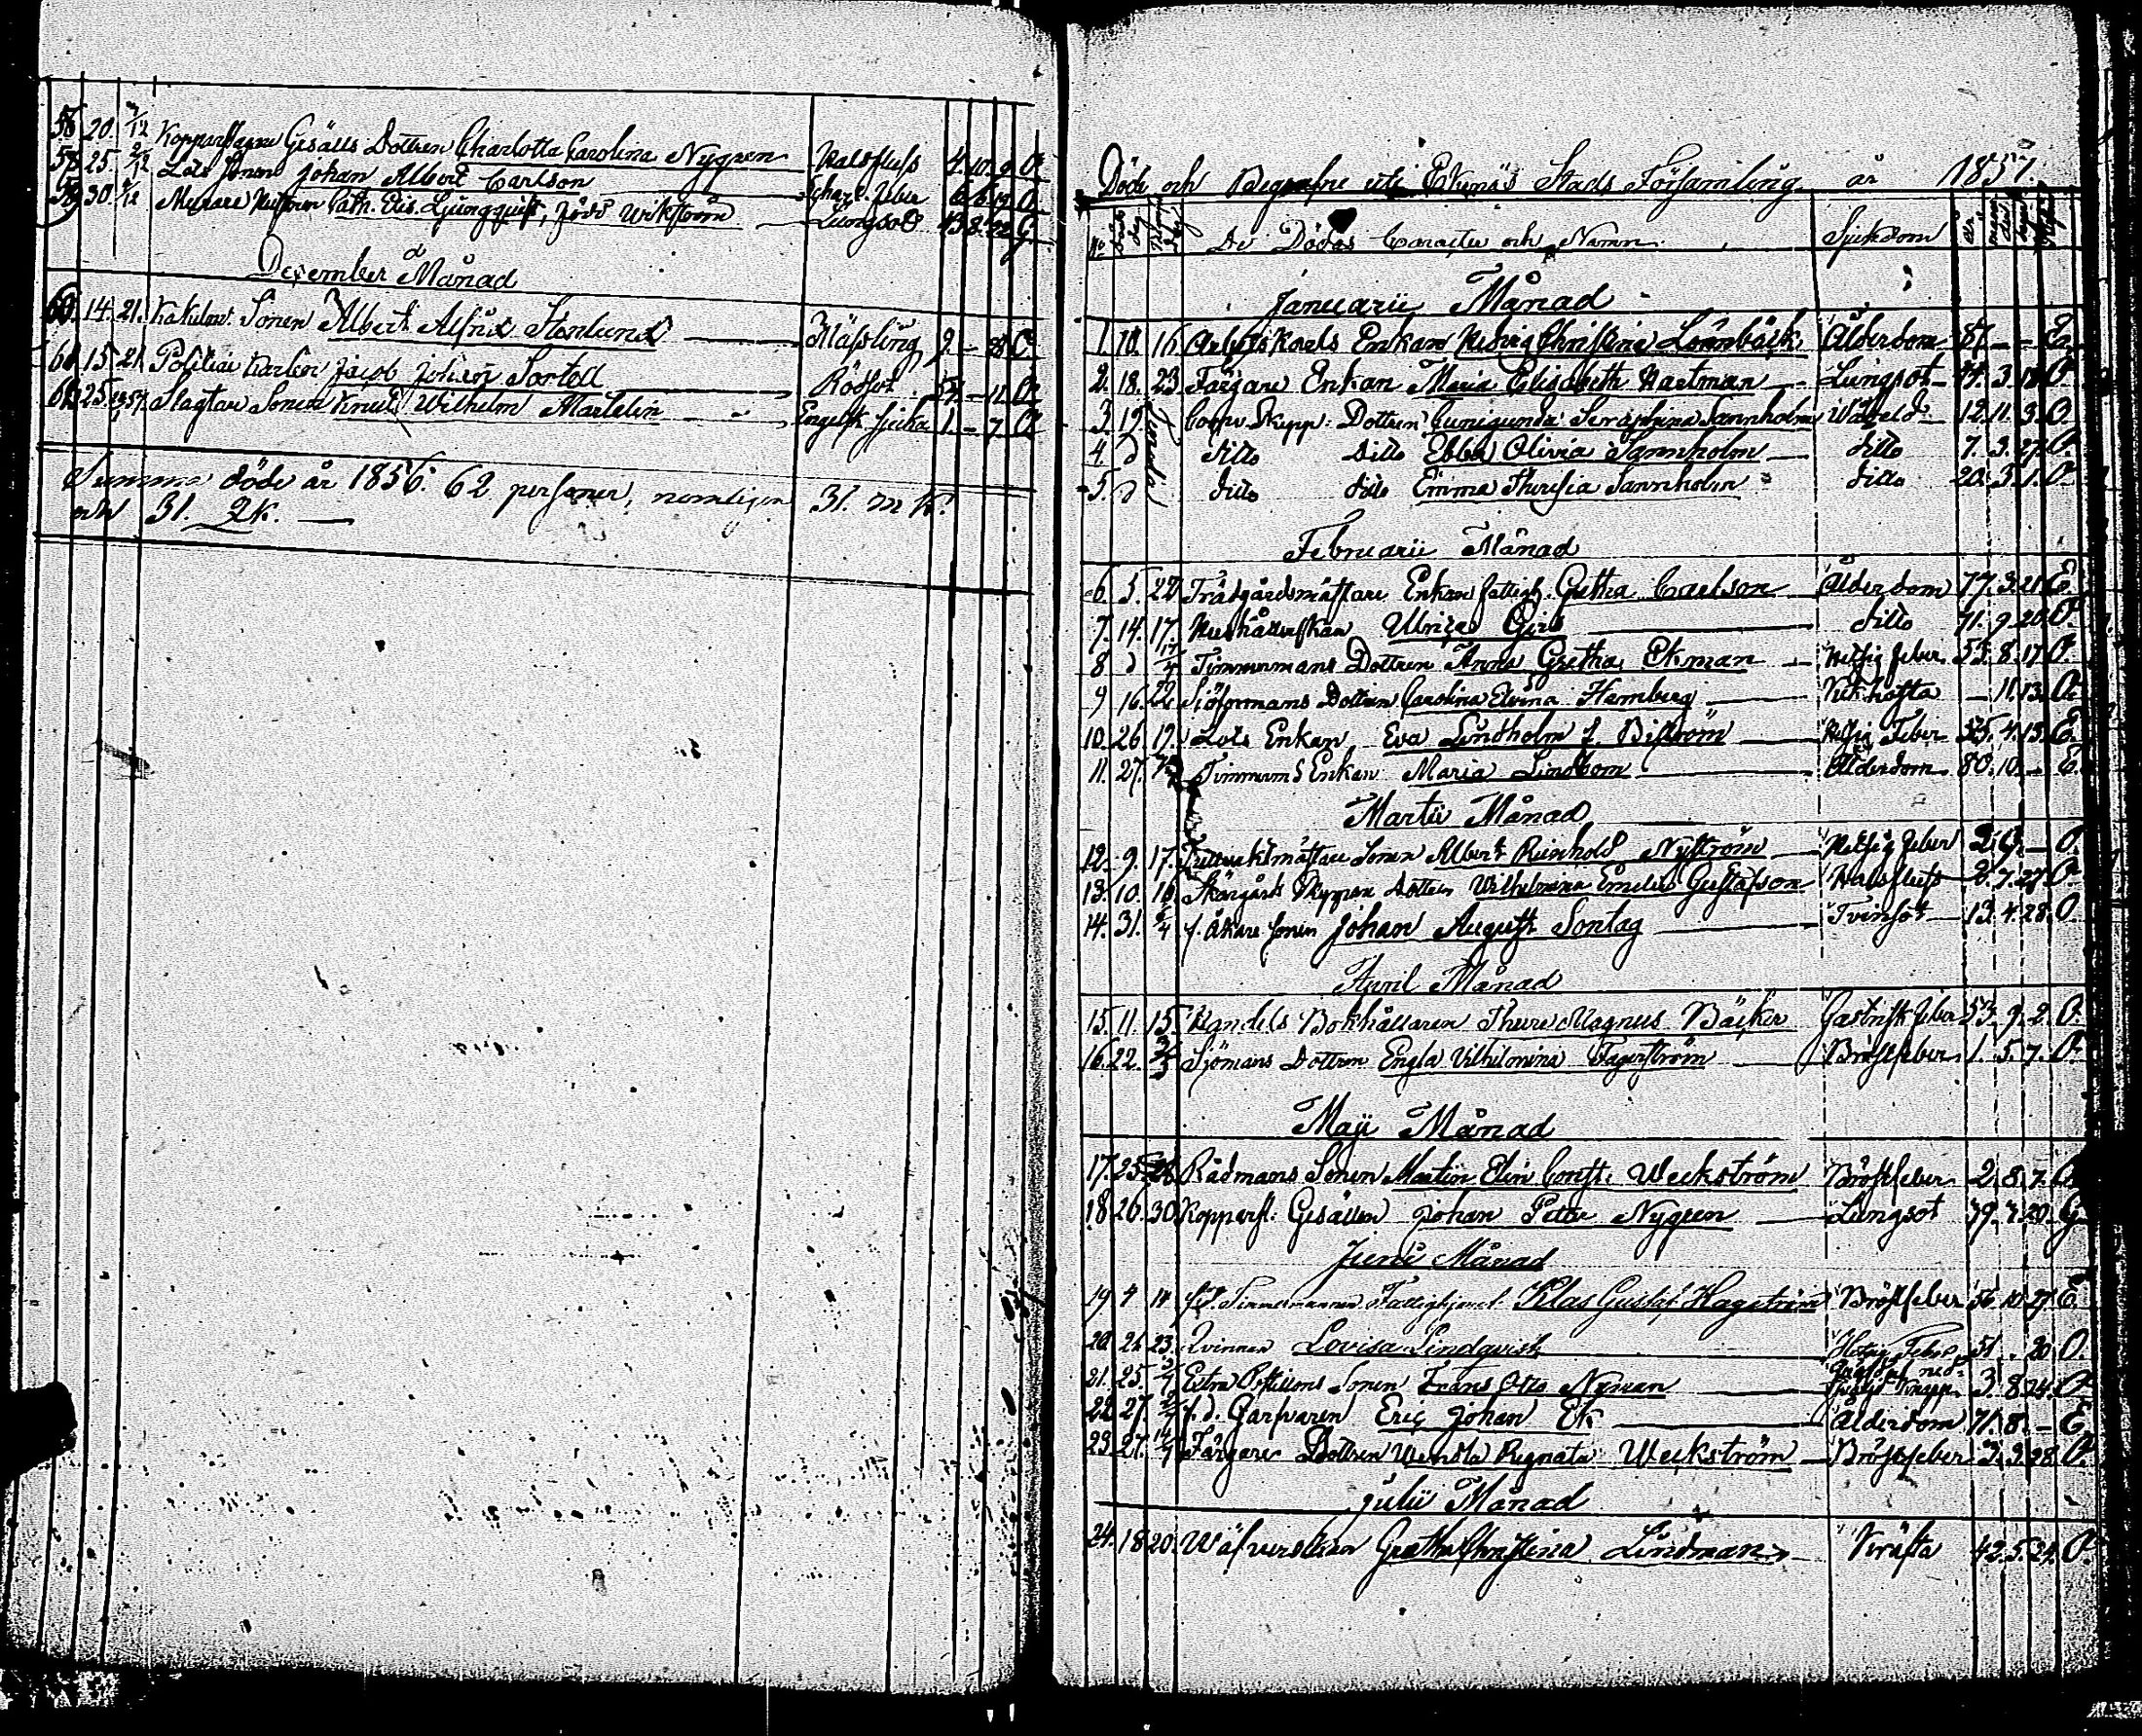 58 20 7/12 Kopparslagare Gesälls Dottren Charlotta Carolina Nygren Halsfluss 4. 10. 9. O.
58 25 2/12 Lots Sonen Johan Albert Carlson Scharl. feber 6. 6. 19. O.
59 30 7/12 Murare Hustrun Cath. Elis. Ljungquist, född Wikström Lungsot 43. 8. 22. G.
December Månad
60. 14. 21. Kakelm: Sonen Albert Alfrid Stenlund Mässling 2. — 28. O.
61. 15. 21. Politiæ Karlen Jacob Johan Sortell Rödsot 54. — 11. O.
62. 25. Slagtare Sonen Knut Wilhelm Martelin Engelsk sjuka 1. — 7. O.
Summa döde år 1856. 62 personer, nemligen 31. m k.
och 31. Qk.
Döde och Begrafne uti Ekenäs Stads Församling år 1857.
No De Dödas Caracter och Namn. Sjukdom år
Januarii Månad
1. 10. 16. Arbetskarls Enkan Hedvig Christina Lönnbäck Ålderdom 87. — — E.
2. 18. 23. Färgare Enkan Maria Elisabeth Hartman Lungsot 44. 3. 18. O.
3. 19. Coopv. Skepp: Dottren Cunigunda Seraphina Sannholm Wådeld 12. 11. 3. O.
4. d ditto ditto Ebba Olivia Sannholm ditto 7. 3. 27. O.
5. d ditto ditto Emma Theresia Sannholm ditto 20. 3. 1. O.
Februarii Månad
6. 5. 22. Trädgårdsmästare Enkan fattigh. Gretha Carlson Ålderdom 77. 3. 21. E.
7. 14. 17. Hushållerskan Ulrica ditto 71. 9. 20. O.
8 d 17/4 Timmermans Dottren Anna Gretha Ekman Hetsig feber 55. 8. 17. O.
9 16. 22 Sjöförmans Dottren Carolina Elvina Hamberg Kikhosta — 11. 13. O.
10. 26. 19. Lots Enkan Eva Lindholm f. Biström Hetsig Feber 35. 4. 13. E.
11. 27. Timmerm: Enkan Maria Lindbom Ålderdom 80. 10. — E.
Martii Månad
12. 9. 17. Sonen Albert Reinhold Nyström Hetsig feber 2. 9. — O.
13. 10. 16. Skärgårds Skeppare Dottren Wilhelmina Emelia Gustafson Halsfluss 2. 7. 27. O.
14. 31. 6/4 f. Åkare sonen Johan August Sontag Tvinsot 13. 4. 28. O.
April Månad
15. 11. 15. Handels Bokhållaren Thure Magnus Bäcker Gastrisk feber 53. 9. 2. O.
16. 22. 3/5 Sjömans Dottren Engla Vilhelmina Fagerström Bröstfeber 1. 5. 7. O.
Maji Månad
17. 25. 28 Rådmans Sonen Martin Elin Const. Weckström Bröstfeber 2. 8. 7. O.
18 26. 30. Kopparsl: Gesällen Johan Petter Nygren Lungsot 79. 7. 20. G.
Junii Månad
19 4 11 f.d. Timmermannen Fattighjonet Klas Gustaf Hagström Bröstfeber 56. 10. 27. E.
20. 21. 23. Qvinnan Lovisa Lindqvist Hetsig Feber 51 . 20 O.
21. 25. Extra Postilions Sonen Frans Otto Nyman 3. 8. 24. O.
22. 27. f.d. Garfvaren Eric Johan Ek Ålderdom 71. 8. — E
23. 27. 14/7 Färgare Dottren Wendla Regnata Weckström Bröstfeber 3. 3. 28. O.
Julii Månad
24. 18 20. Wäfverskan Gretha Christina Lindman Kräfta 42. 5. 24. O.